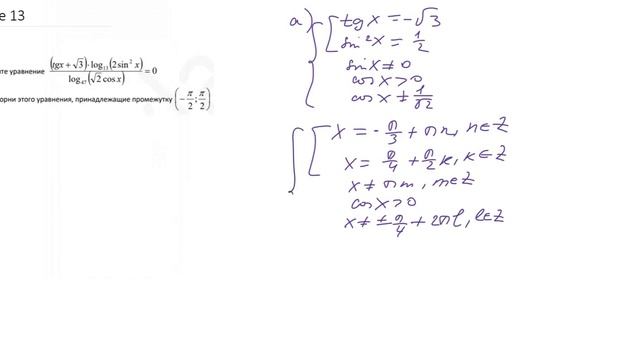 е 13
те уравнение (tgx + √3)·log₁₃(2sin²x) / log₄₇(√2 cosx) = 0
орни этого уравнения, принадлежащие промежутку (-π/2; π/2)
а) tg x = -√3
sin²x = 1/2
sin x ≠ 0
cos x > 0
cos x ≠ 1/√2
x = -π/3 + πn, n∈Z
x = π/4 + π/2 k, k∈Z
x ≠ πm, m∈Z
cos x > 0
x ≠ ±π/4 + 2πl, l∈Z